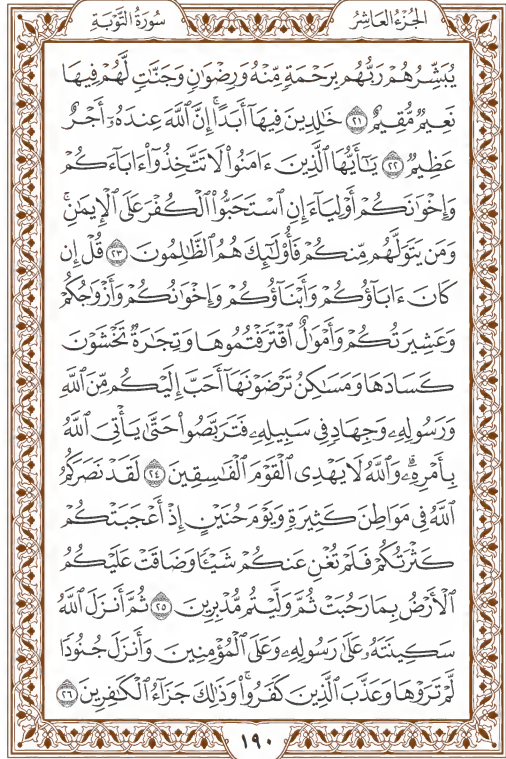 الجُزْءُ العَاشِرُ سُورَةُ التَّوْبَةِ
يُبَشِّرُهُمْ رَبُّهُم بِرَحْمَةٍ مِّنْهُ وَرِضْوَٰنٍ وَجَنَّٰتٍ لَّهُمْ فِيهَا
نَعِيمٌ مُّقِيمٌ ٢١ خَٰلِدِينَ فِيهَآ أَبَدًا ۚ إِنَّ ٱللَّهَ عِندَهُۥٓ أَجْرٌ
عَظِيمٌ ٢٢ يَٰٓأَيُّهَا ٱلَّذِينَ ءَامَنُوا۟ لَا تَتَّخِذُوٓا۟ ءَابَآءَكُمْ
وَإِخْوَٰنَكُمْ أَوْلِيَآءَ إِنِ ٱسْتَحَبُّوا۟ ٱلْكُفْرَ عَلَى ٱلْإِيمَٰنِ ۚ
وَمَن يَتَوَلَّهُم مِّنكُمْ فَأُو۟لَٰٓئِكَ هُمُ ٱلظَّٰلِمُونَ ٢٣ قُلْ إِن
كَانَ ءَابَآؤُكُمْ وَأَبْنَآؤُكُمْ وَإِخْوَٰنُكُمْ وَأَزْوَٰجُكُمْ
وَعَشِيرَتُكُمْ وَأَمْوَٰلٌ ٱقْتَرَفْتُمُوهَا وَتِجَٰرَةٌ تَخْشَوْنَ
كَسَادَهَا وَمَسَٰكِنُ تَرْضَوْنَهَآ أَحَبَّ إِلَيْكُم مِّنَ ٱللَّهِ
وَرَسُولِهِۦ وَجِهَادٍ فِى سَبِيلِهِۦ فَتَرَبَّصُوا۟ حَتَّىٰ يَأْتِىَ ٱللَّهُ
بِأَمْرِهِۦ ۗ وَٱللَّهُ لَا يَهْدِى ٱلْقَوْمَ ٱلْفَٰسِقِينَ ٢٤ لَقَدْ نَصَرَكُمُ
ٱللَّهُ فِى مَوَاطِنَ كَثِيرَةٍ ۙ وَيَوْمَ حُنَيْنٍ ۙ إِذْ أَعْجَبَتْكُمْ
كَثْرَتُكُمْ فَلَمْ تُغْنِ عَنكُمْ شَيْـًٔا وَضَاقَتْ عَلَيْكُمُ
ٱلْأَرْضُ بِمَا رَحُبَتْ ثُمَّ وَلَّيْتُم مُّدْبِرِينَ ٢٥ ثُمَّ أَنزَلَ ٱللَّهُ
سَكِينَتَهُۥ عَلَىٰ رَسُولِهِۦ وَعَلَى ٱلْمُؤْمِنِينَ وَأَنزَلَ جُنُودًا
لَّمْ تَرَوْهَا وَعَذَّبَ ٱلَّذِينَ كَفَرُوا۟ ۚ وَذَٰلِكَ جَزَآءُ ٱلْكَٰفِرِينَ ٢٦
١٩٠